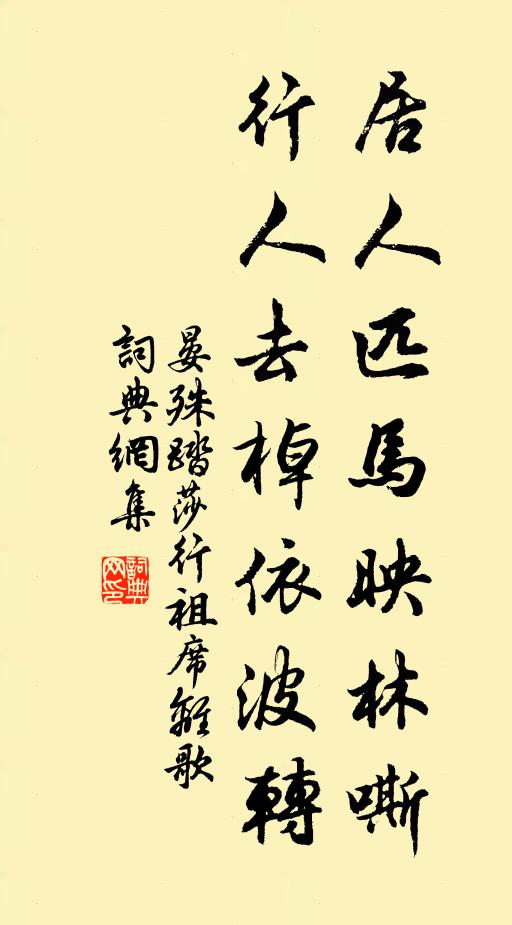 居人匹馬映林嘶
行人去棹依波轉
晏殊踏莎行祖席離歌
詞典網集
詞典网印